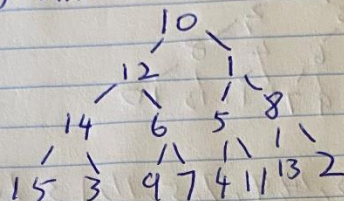 10
12 1
14 6 5 8
15 3 9 7 4 11 13 2